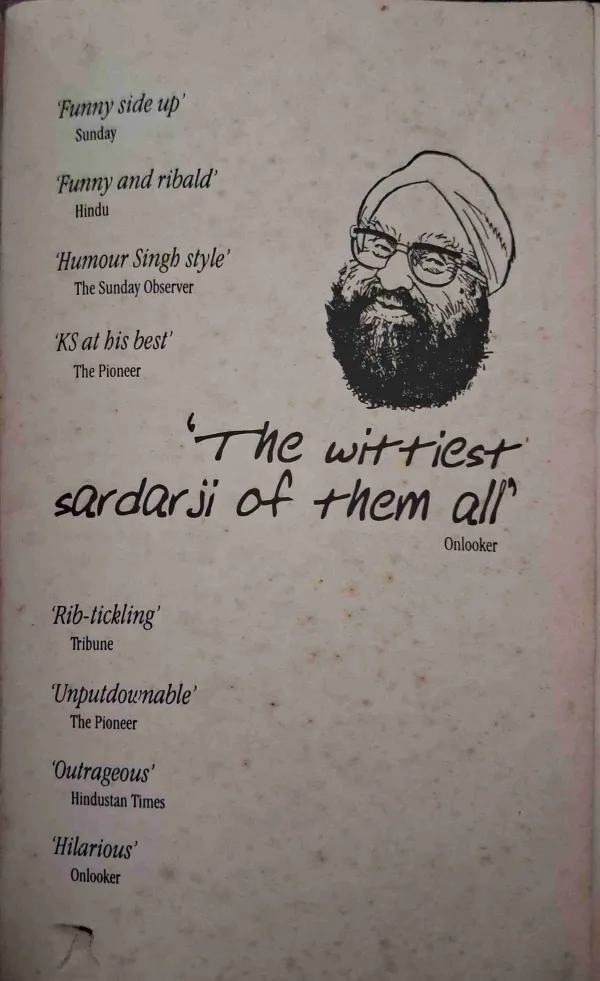 ‘Funny side up’
Sunday
‘Funny and ribald’
Hindu
‘Humour Singh style’
The Sunday Observer
‘KS at his best’
The Pioneer
‘The wittiest
sardarji of them all’
Onlooker
‘Rib-tickling’
Tribune
‘Unputdownable’
The Pioneer
‘Outrageous’
Hindustan Times
‘Hilarious’
Onlooker